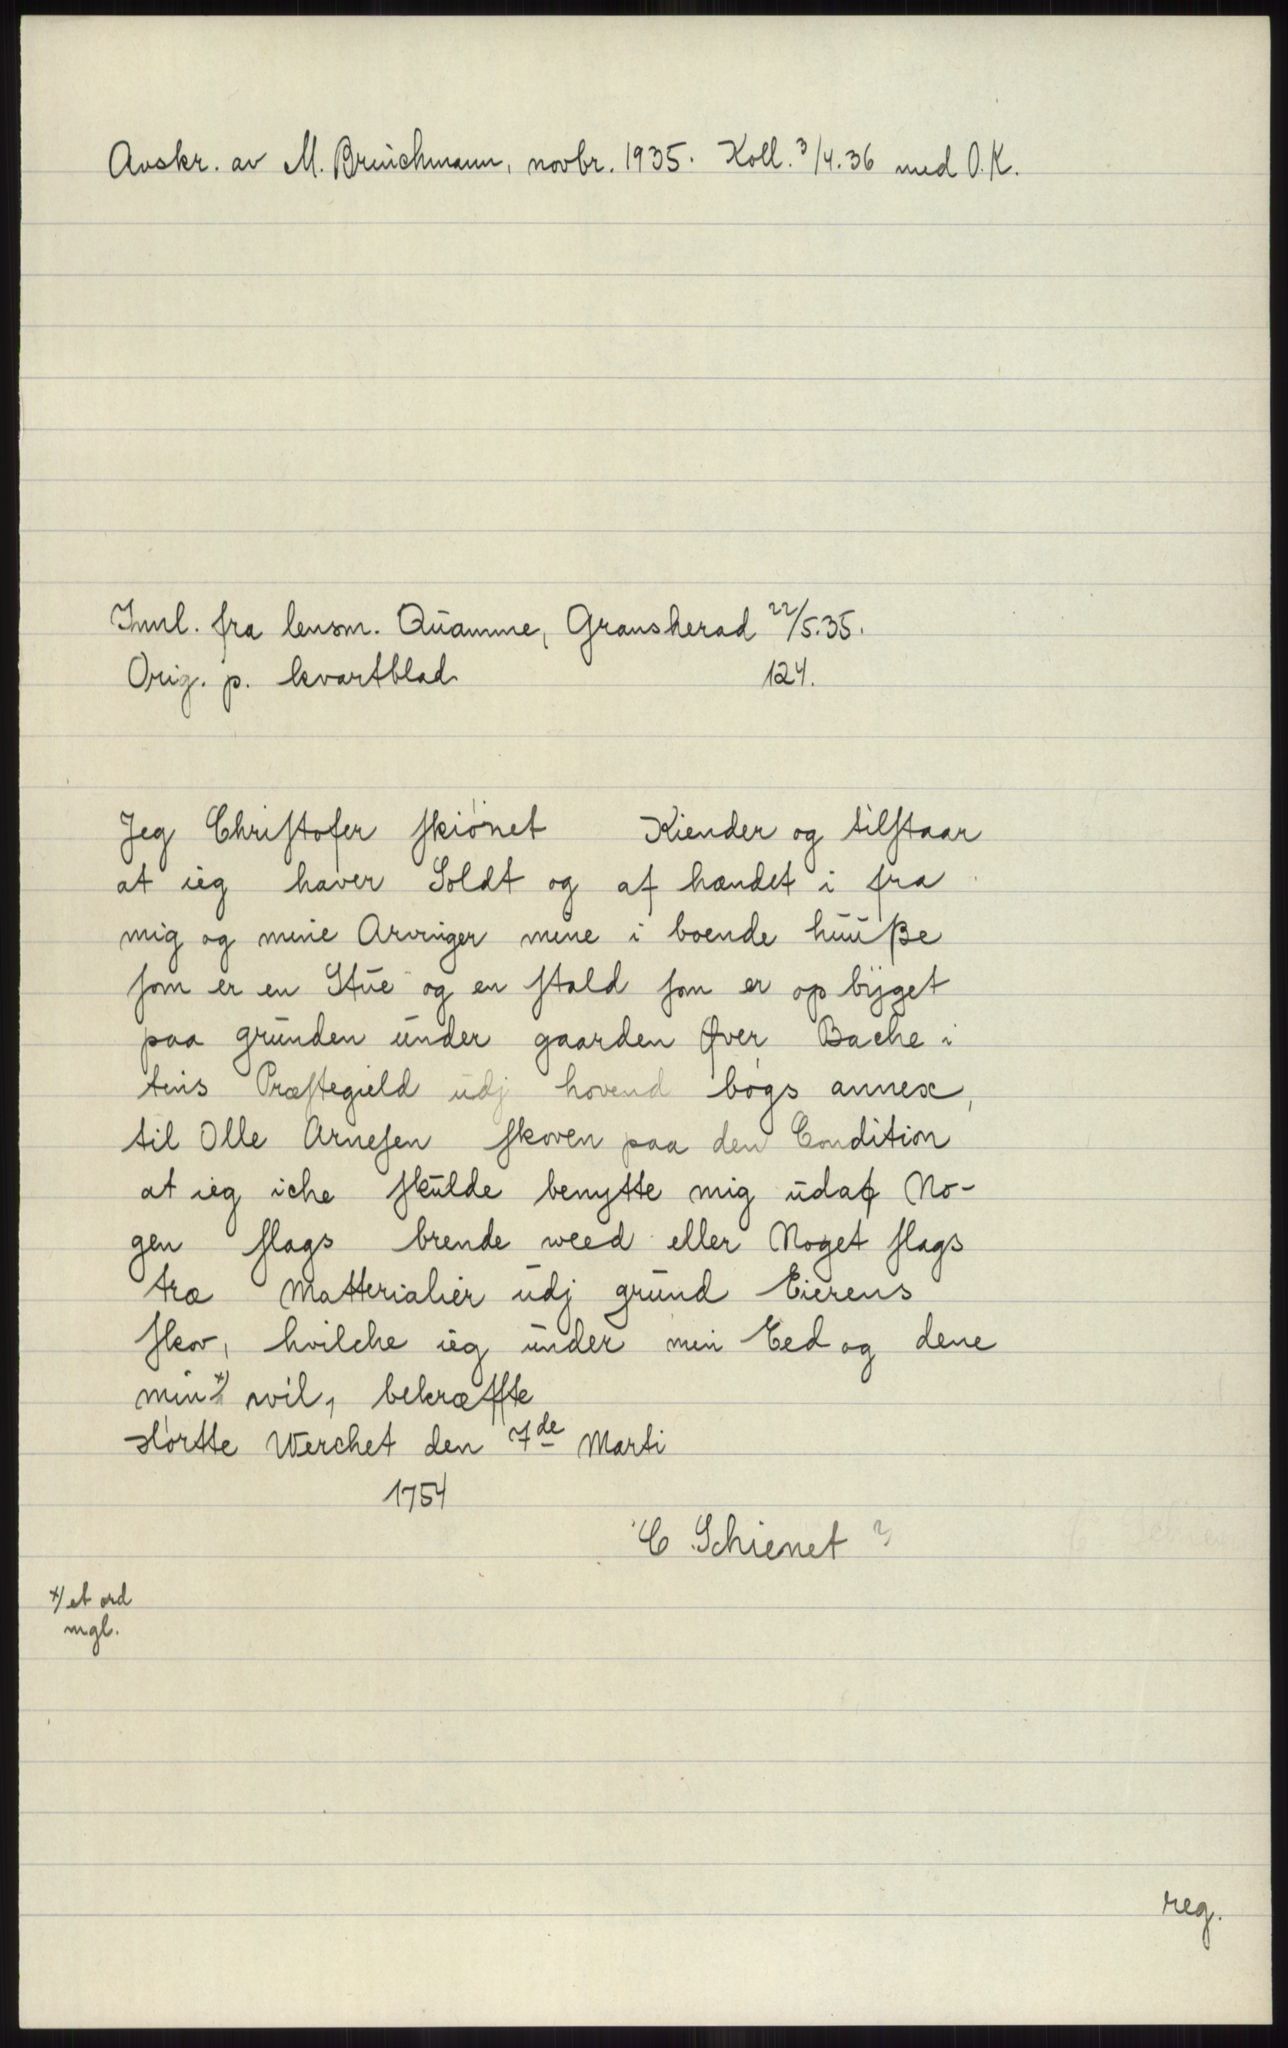 Avskr. av M. Brinchmann, novbr. 1935. Koll. 3/4.36 med O.K.
Innl. fra lensm. Quamme, Gransherad 22/5.35.
Orig. p. kvartblad 124.
Jeg Christofer skiönet Kiender og tilstaar
at ieg haver Soldt og af hændet i fra
mig og mine Arvinger mine i boende huuße
som er en Stue og en stald som er op byget
paa grunden under gaarden Øver Bache i
tins Præstegield udj hovend bøgs annex,
til Olle Arnesen skoven paa den Condition
at ieg iche skulde benytte mig udaf No-
gen slags brende weed eller Noget slags
træ Matterialier udj grund Eierens
skov, hvilche ieg under min Eed og dene
min x) wil, bekræffte
slortte Werchet den 7de Marti
1754
C Schienet ?
x) et ord
mgl.
reg.